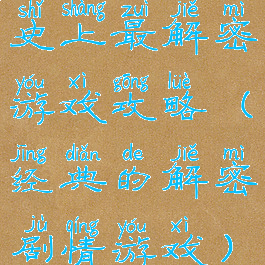 shǐ shàng zuì jiě mì
史上最解密
yóu xì gōng lüè
游戏攻略（
jīng diǎn de jiě mì
经典的解密
jù qíng yóu xì
剧情游戏）